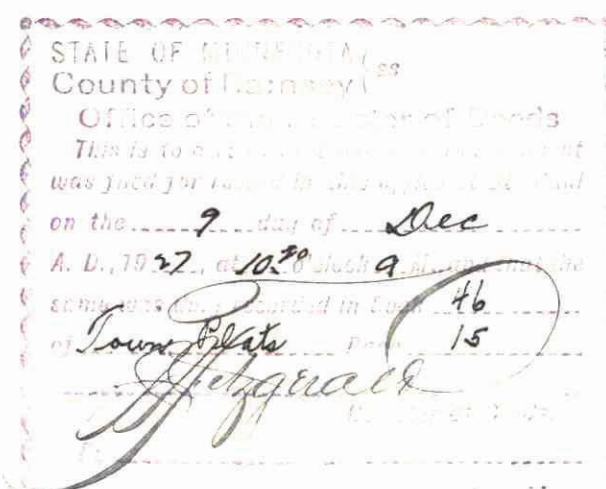 STATE OF MINNESOTA } ss
County of Ramsey
Office of the Register of Deeds
This is to
was filed for record in this office at St. Paul
on the 9 day of Dec
A. D., 1927, at 10.30 o'clock a M. and that the
same was duly recorded in Book 46
of Town Plats Page 15
Fitzgerald